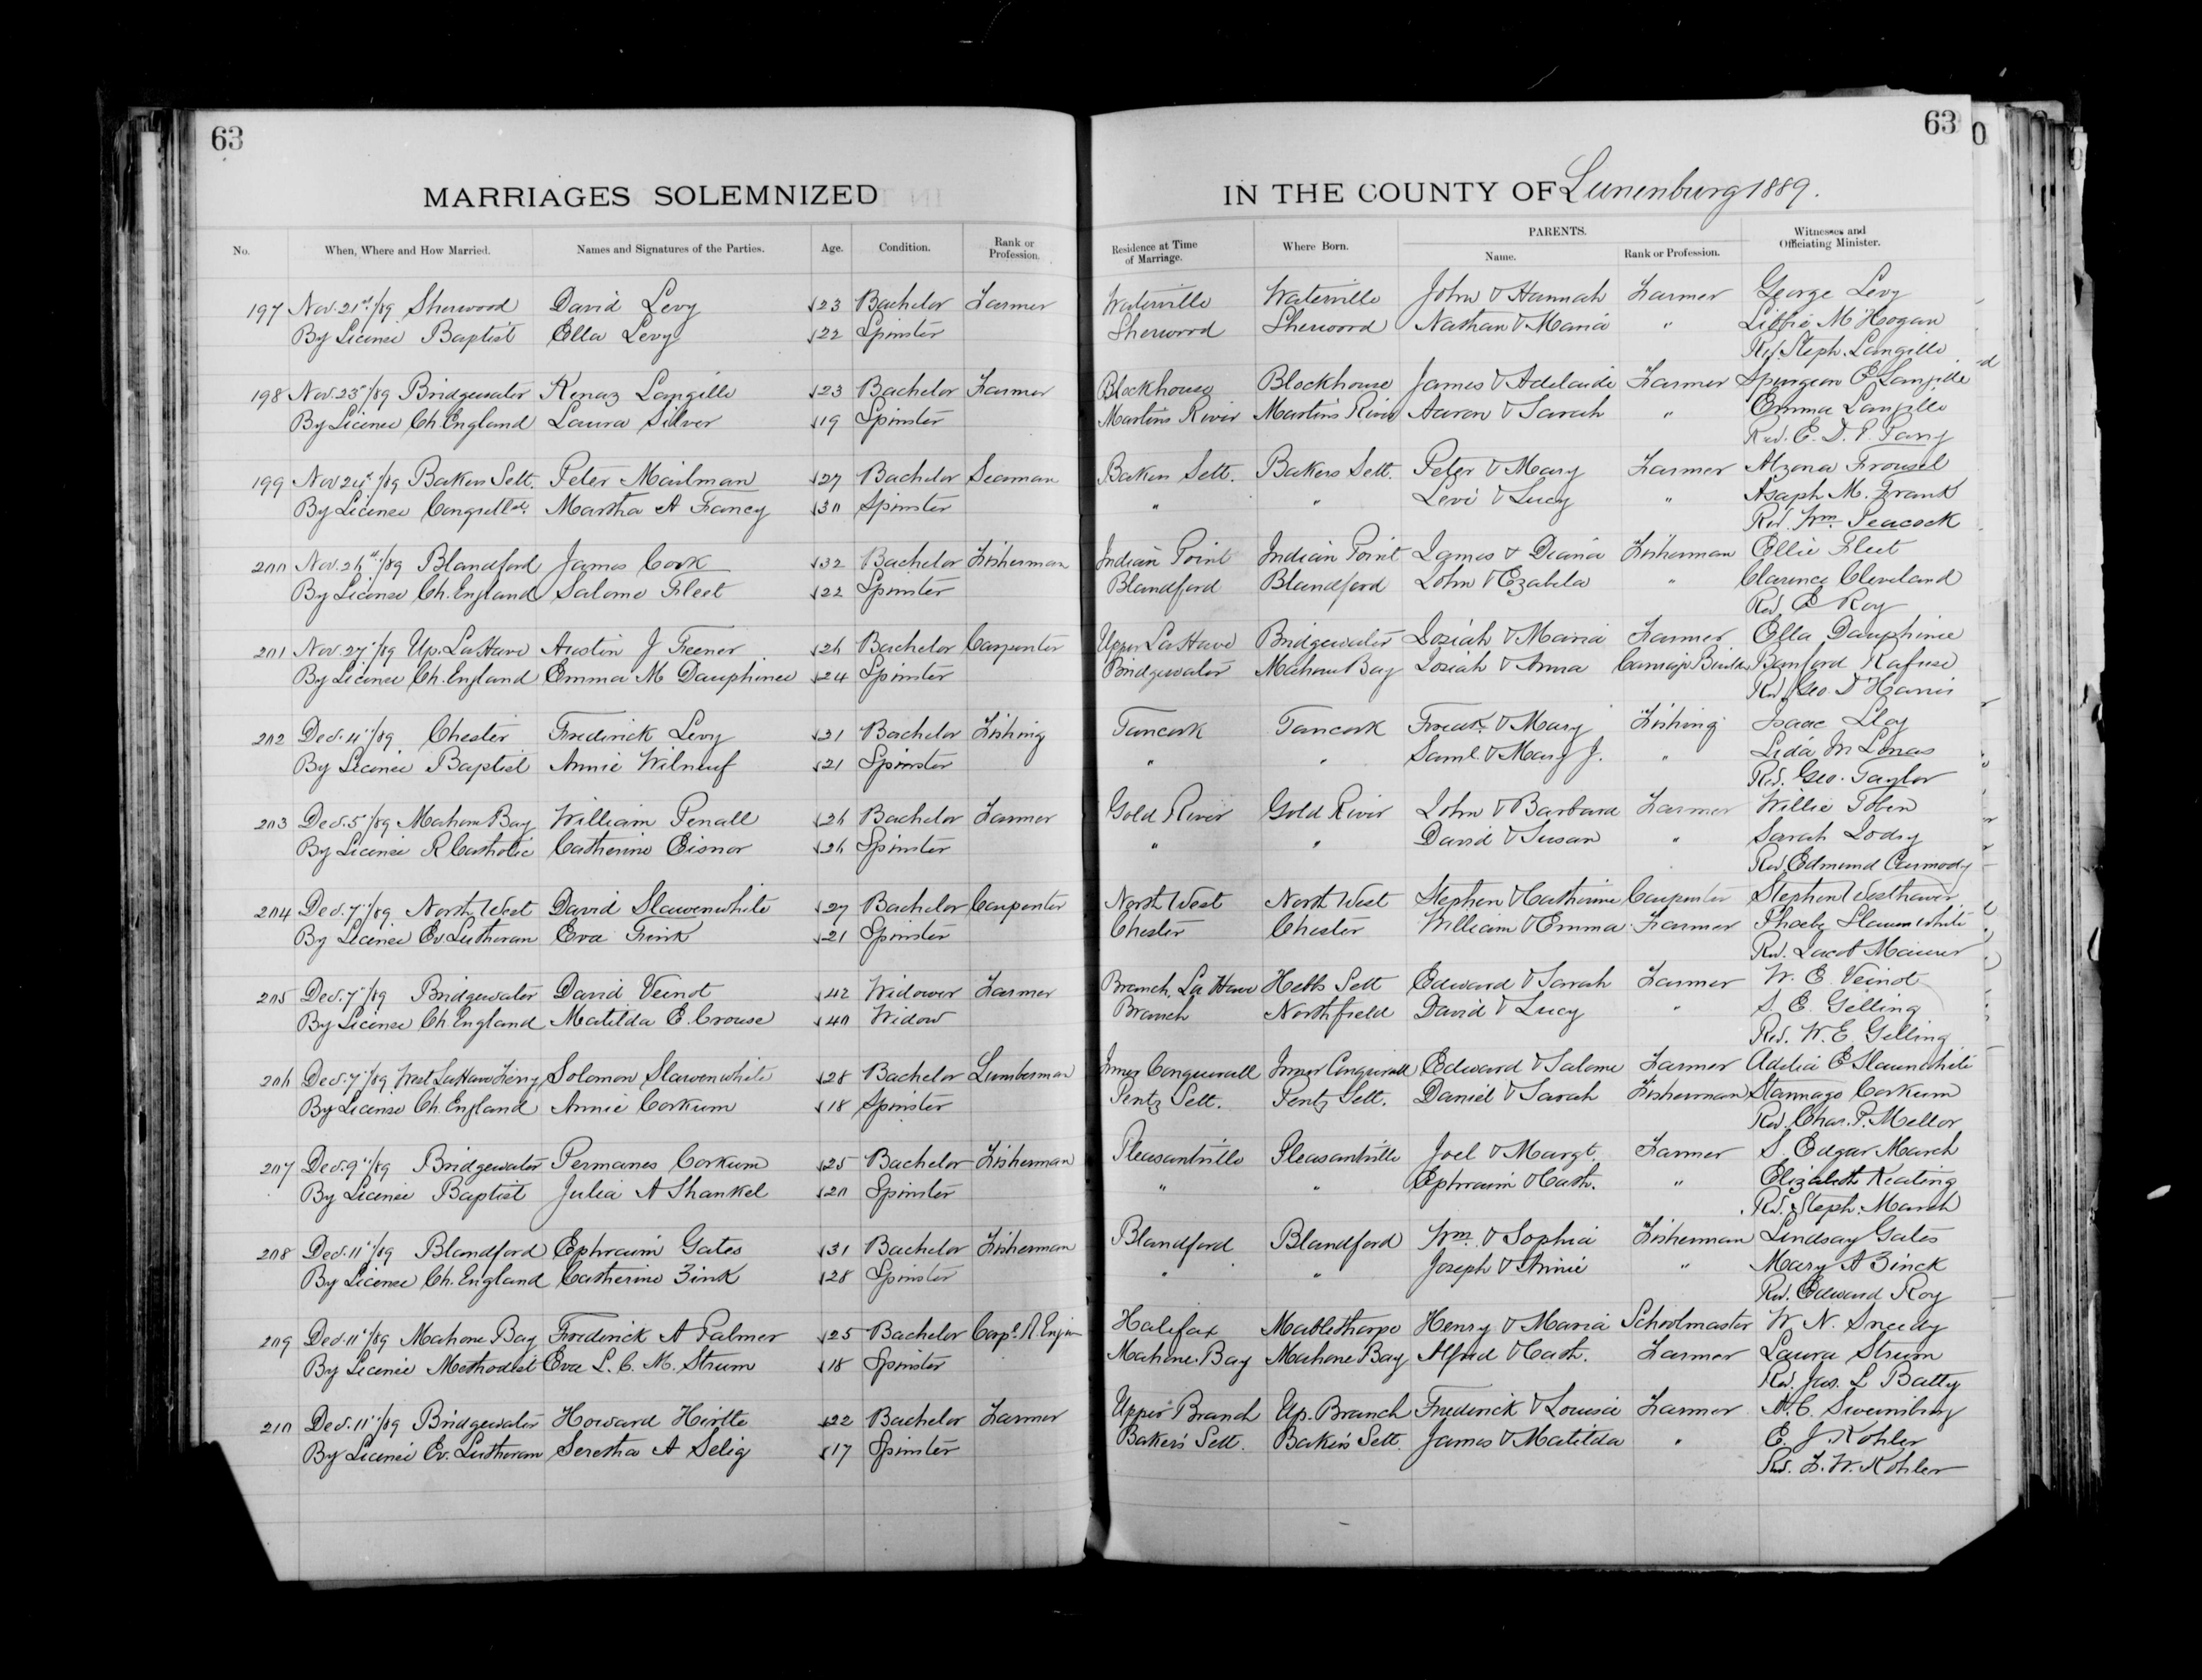 63
63
MARRIAGES SOLEMNIZED IN THE COUNTY OF Lunenburg 1889.
No. When, Where and How Married. Names and Signatures of the Parties. Age. Condition. Rank or Profession. Residence at Time of Marriage. Where Born. PARENTS. Name. Rank or Profession. Witnesses and Officiating Minister.
197 Nov. 21st/89 Sherwood David Levy 23 Bachelor Farmer Waterville Waterville John & Hannah Farmer George Levy
By License Baptist Ella Levy 22 Spinster Sherwood Sherwood Nathan & Maria " Libbie M Hogan
Rev Steph. Langille
198 Nov. 23"/89 Bridgewater Kenaz Langille 23 Bachelor Farmer Blockhouse Blockhouse James & Adelaide Farmer Spurgeon E Langille
By License Ch. England Laura Silver 19 Spinster Martins River Martins River Aaron & Sarah " Emma Langille
Rev. E. D. P. Parry
199 Nov 24"/89 Bakers Sett. Peter Mailman 27 Bachelor Seaman Bakers Sett. Bakers Sett. Peter & Mary Farmer
By License Martha A Francy 30 Spinster " " Levi & Lucy " Asaph M. Frank
Rev. Wm. Peacock
200 Nov. 26"/89 Blandford James Cook 32 Bachelor Fisherman Indian Point Indian Point James & Diana Fisherman Ellie Fleet
By License Ch. England Salome Fleet 22 Spinster Blandford Blandford John & Ezabela " Clarence Cleveland
Rev. E Roy
201 Nov. 27"/89 Up. LaHave Austin J Feener 26 Bachelor Carpenter Upper LaHave Bridgewater Josiah & Maria Farmer Ella Dauphinee
By License Ch. England Emma M Dauphinee 24 Spinster Bridgewater Mahone Bay Josiah & Anna Carriage Builder Banford Rafuse
Rev. Geo. D Harris
202 Dec. 4"/89 Chester Frederick Levy 21 Bachelor Fishing Tancook Tancook Fredk. & Mary Fishing Isaac
By License Baptist Annie Wilneuf 21 Spinster " " Saml. & Mary J. " Lida
Rev. Geo. Taylor
203 Dec. 5"/89 Mahone Bay William Penall 26 Bachelor Farmer Gold River Gold River John & Barbara Farmer Willie Tobin
By License R Catholic Catherine Eisnor 26 Spinster " " David & Susan " Sarah Lodry
Rev. Edmund Carmody
204 Dec. 7"/89 North West David Slawenwhite 27 Bachelor Carpenter North West North West Stephen & Catherine Carpenter Stephen Westhaver
By License Ev Lutheran Eva Frink 21 Spinster Chester Chester William & Emma Farmer Phoebe Slaunwhite
Rev. Jacob Maurer
205 Dec. 7"/89 Bridgewater David Veinot 42 Widower Farmer Branch, LaHave Hebbs Sett Edward & Sarah Farmer W. E. Veinot
By License Ch. England Matilda E. Crouse 40 Widow Branch Northfield David & Lucy " S. E. Gelling
Rev. W. E. Gelling
206 Dec. 7"/89 West LaHave Ferry Solomon Slawenwhite 28 Bachelor Lumberman Inner Conquerall Inner Conquerall Edward & Salome Farmer Adelia E Slaunwhite
By License Ch. England Annie Corkum 18 Spinster Pentz Sett. Pentz Sett. Daniel & Sarah Fisherman Stannage Corkum
Rev. Chas. P. Mellor
207 Dec. 9"/89 Bridgewater Permanes Corkum 25 Bachelor Fisherman Pleasantville Pleasantville Joel & Margt. Farmer S. Edgar March
By License Baptist Julia A Shankel 20 Spinster " " Ephraim & Cath. " Elizabeth Keating
Rev. Steph. March
208 Dec. 11"/89 Blandford Ephraim Gates 31 Bachelor Fisherman Blandford Blandford Wm. & Sophia Fisherman Lindsay Gates
By License Ch. England Catherine Zink 28 Spinster " " Joseph & Annie " Mary A Zinck
Rev. Edward Roy
209 Dec. 11"/89 Mahone Bay Frederick A Palmer 25 Bachelor Corpl. R. Halifax Mablethorpe Henry & Maria Schoolmaster W. N.
By License Methodist Eva L. C. M. Strum 18 Spinster Mahone Bay Mahone Bay Alfred & Cath. Farmer Laura Strum
Rev. Jas. L Batty
210 Dec. 11"/89 Bridgewater Howard Hirtle 22 Bachelor Farmer Upper Branch Up. Branch Frederick & Louisa Farmer
By License Ev. Lutheran Seretha A Selig 17 Spinster Baker's Sett. Baker's Sett. James & Matilda " E. J Kohler
Rev. F. W. Kohler